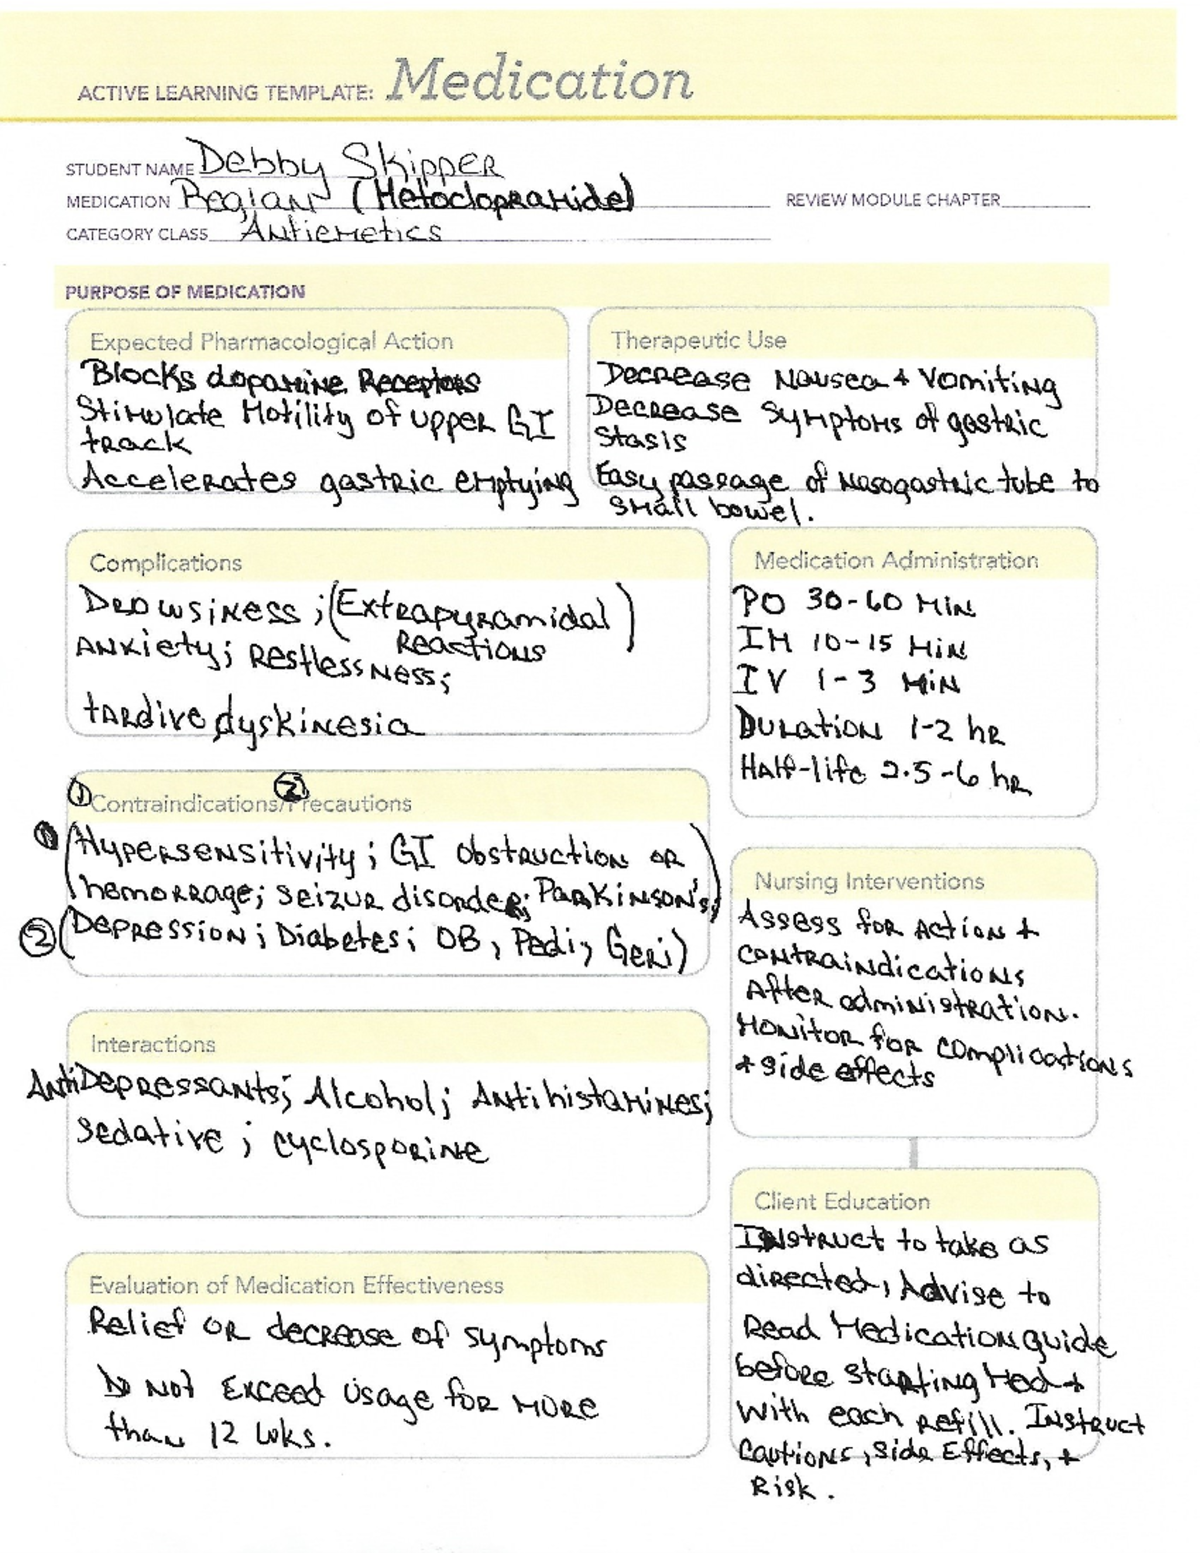 ACTIVE LEARNING TEMPLATE: Medication
STUDENT NAME Debby Skipper
MEDICATION Reglan (Metoclopramide) REVIEW MODULE CHAPTER
CATEGORY CLASS Antiemetics
PURPOSE OF MEDICATION
Expected Pharmacological Action
Blocks dopamine Receptors
Stimulate Motility of upper GI
track
Accelerates gastric emptying
Therapeutic Use
Decrease Nausea + Vomiting
Decrease Symptoms of gastric
Stasis
Easy passage of Nasogastric tube to
small bowel.
Complications
Drowsiness ; (Extrapyramidal
Reactions)
Anxiety; Restlessness;
tardive dyskinesia
Medication Administration
PO 30-60 Min
IM 10-15 Min
IV 1-3 Min
Duration 1-2 hr
Half-life 2.5-6 hr
① Contraindications/② Precautions
① (Hypersensitivity; GI obstruction or
hemorrage; seizur disorder; Parkinson's;)
② (Depression; Diabetes; OB, Pedi, Geri)
Nursing Interventions
Assess for action +
contraindications
After administration.
Monitor for complications
+ side effects
Interactions
AntiDepressants; Alcohol; Antihistamines;
Sedative ; cyclosporine
Client Education
Instruct to take as
directed, Advise to
Read Medication guide
before starting Med +
with each refill. Instruct
Cautions, Side Effects, +
Risk.
Evaluation of Medication Effectiveness
Relief or decrease of symptoms
Do Not Exceed usage for more
than 12 wks.